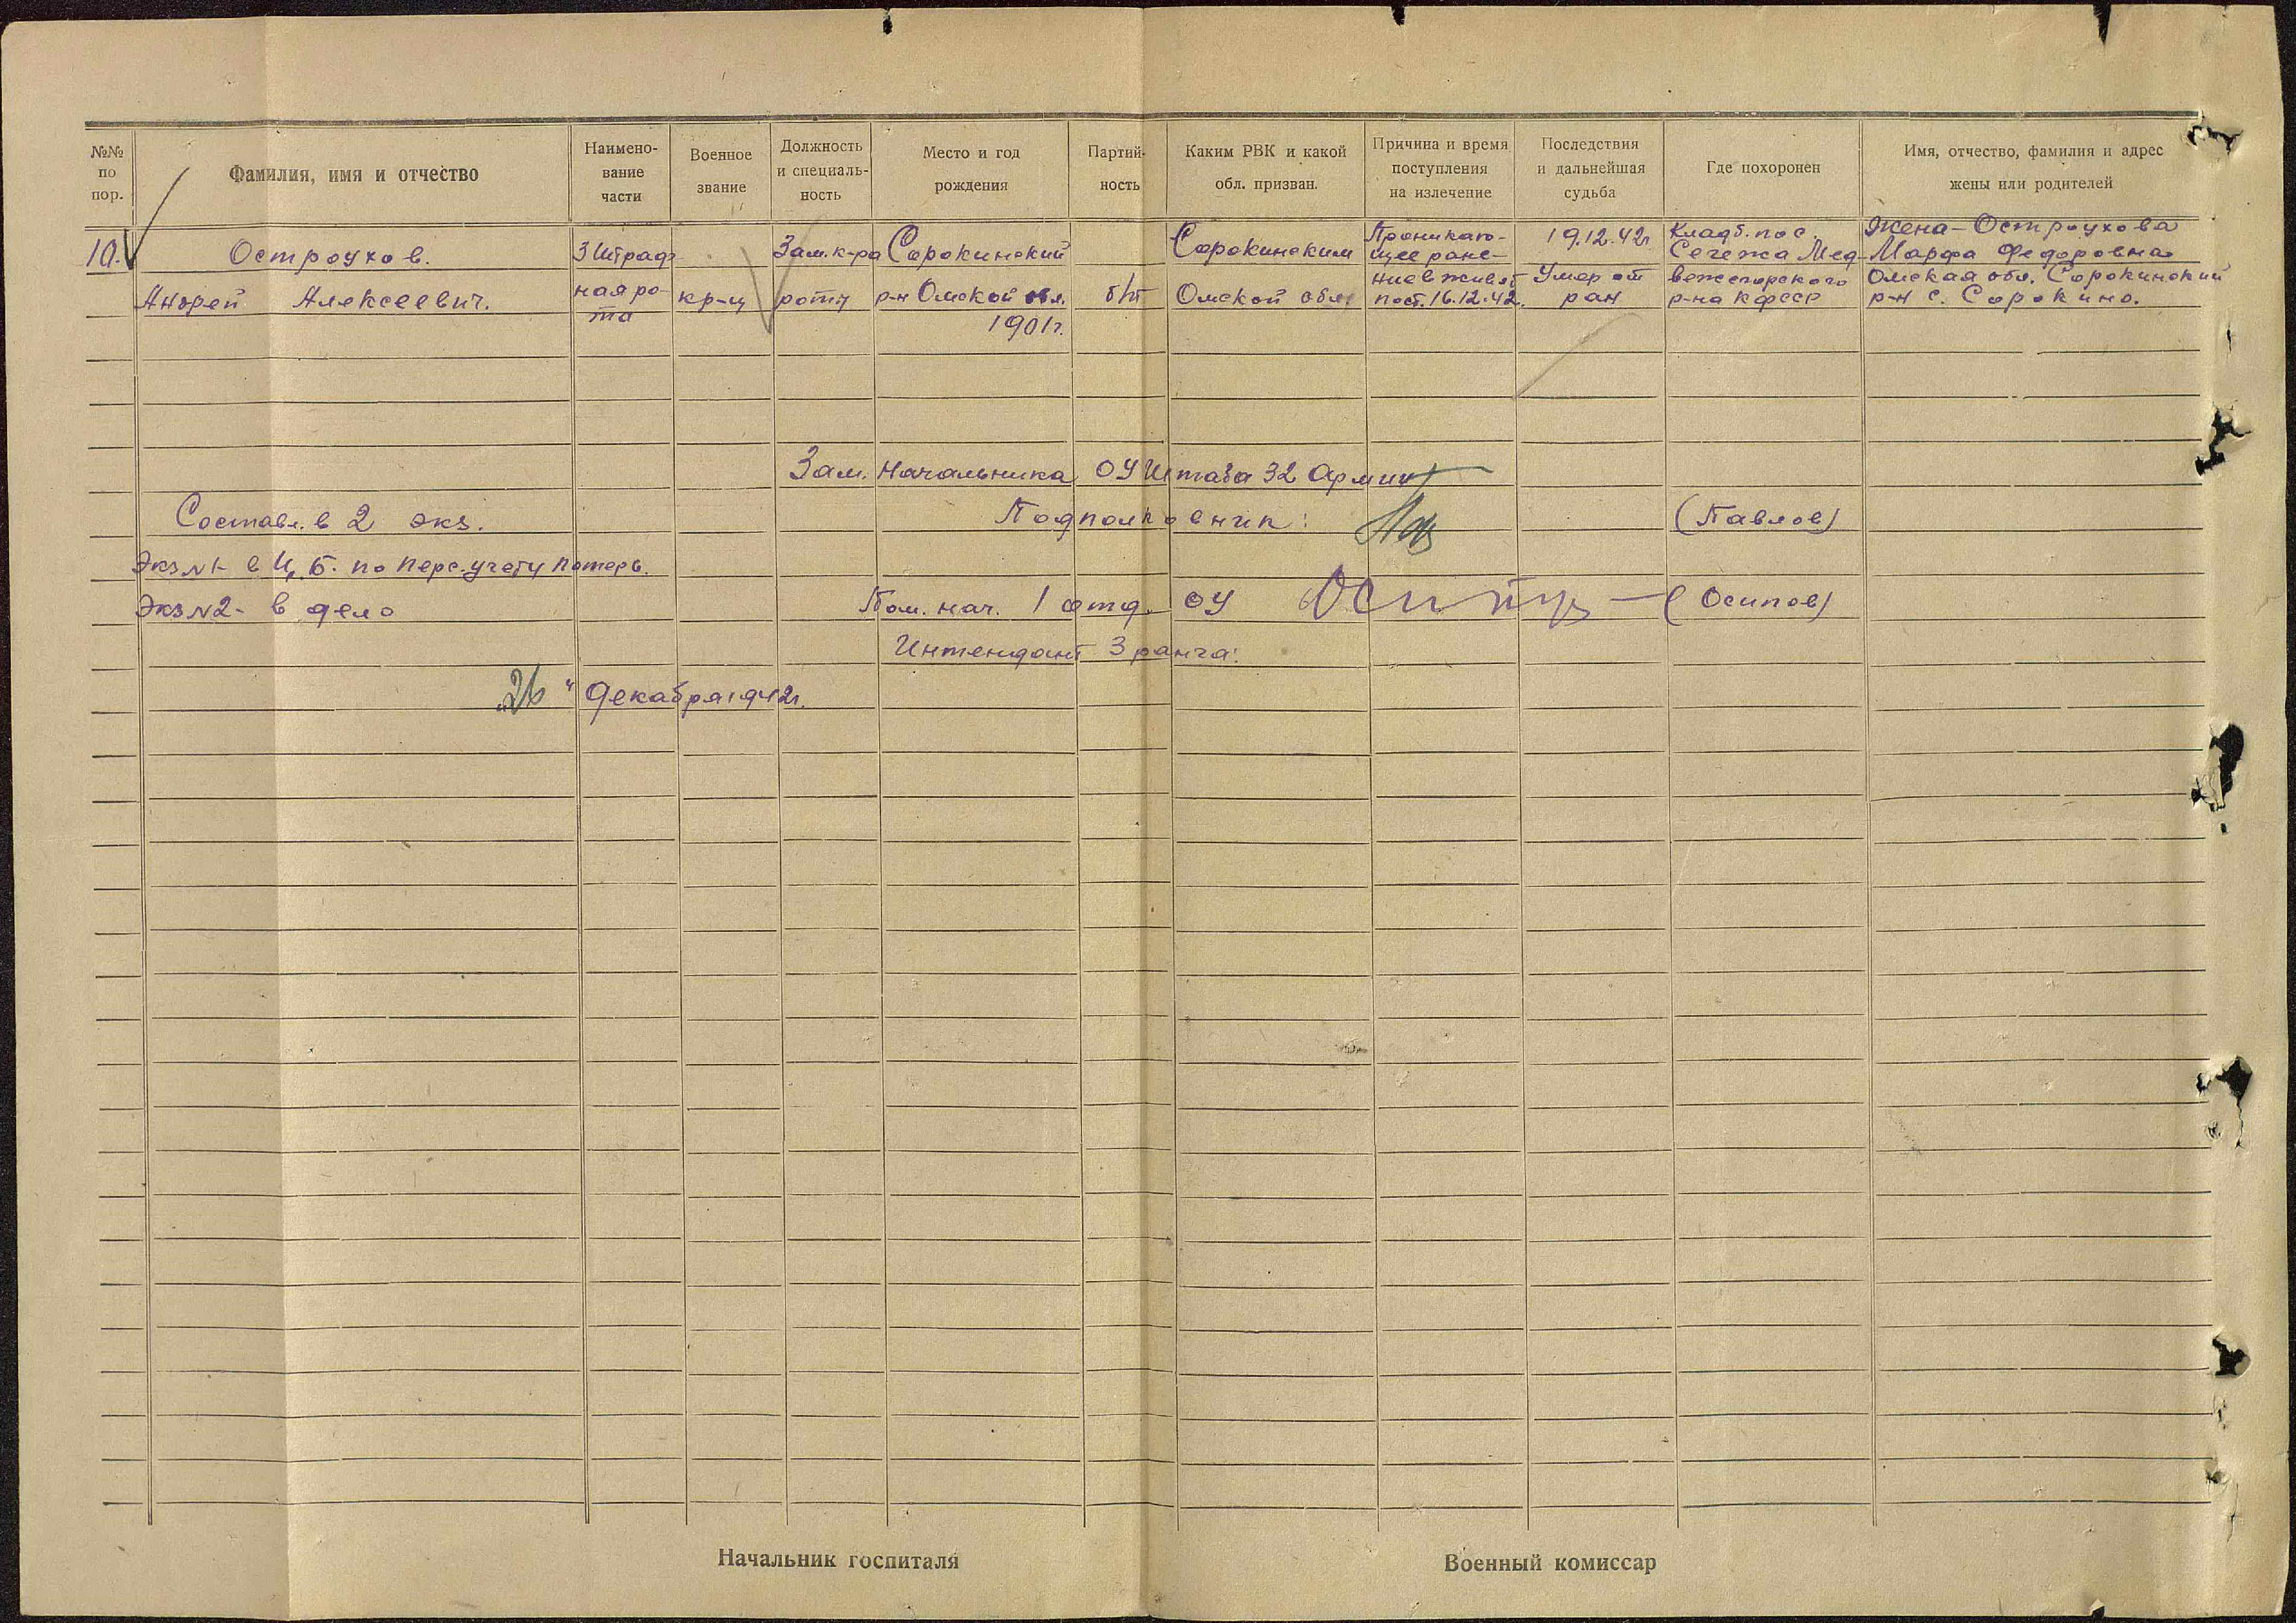 №№
по
пор.
Фамилия, имя и отчество
Наимено-
вание
части
Военное
звание
Должность
и специаль-
ность
Место и год
рождения
Партий-
ность
Каким РВК и какой
обл. призван.
Причина и время
поступления
на излечение
Последствия
и дальнейшая
судьба
Где похоронен
Имя, отчество, фамилия и адрес
жены или родителей
10.
Остроухов.
Андрей Алексеевич.
3 Штраф-
ная ро-
та
кр-ц
Зам. к-ра
роты
Сорокинский
р-н Омской обл.
1901г.
б/п
Сорокинским
Омской обл.
Проникаю-
щее ране-
ние в живот
пост. 16.12.42.
19.12.42г.
Умер от
ран
Кладб. пос.
Сечежа Мед-
вежегорского
р-на КФССР
Жена - Остроухова
Марфа Федоровна
Омская обл. Сорокинский
р-н с. Сорокино.
Зам. Начальника ОУ Штаба 32 Армии
Составл. в 2 экз.
Подполковник:
(Павлов)
Экз N1- в Ц.Б. по перс. учету потерь.
Экз N2- в дело
Пом. нач. 1 отд. ОУ
(Осипов)
Интендант 3 ранга:
"26" декабря 1942г.
Начальник госпиталя
Военный комиссар